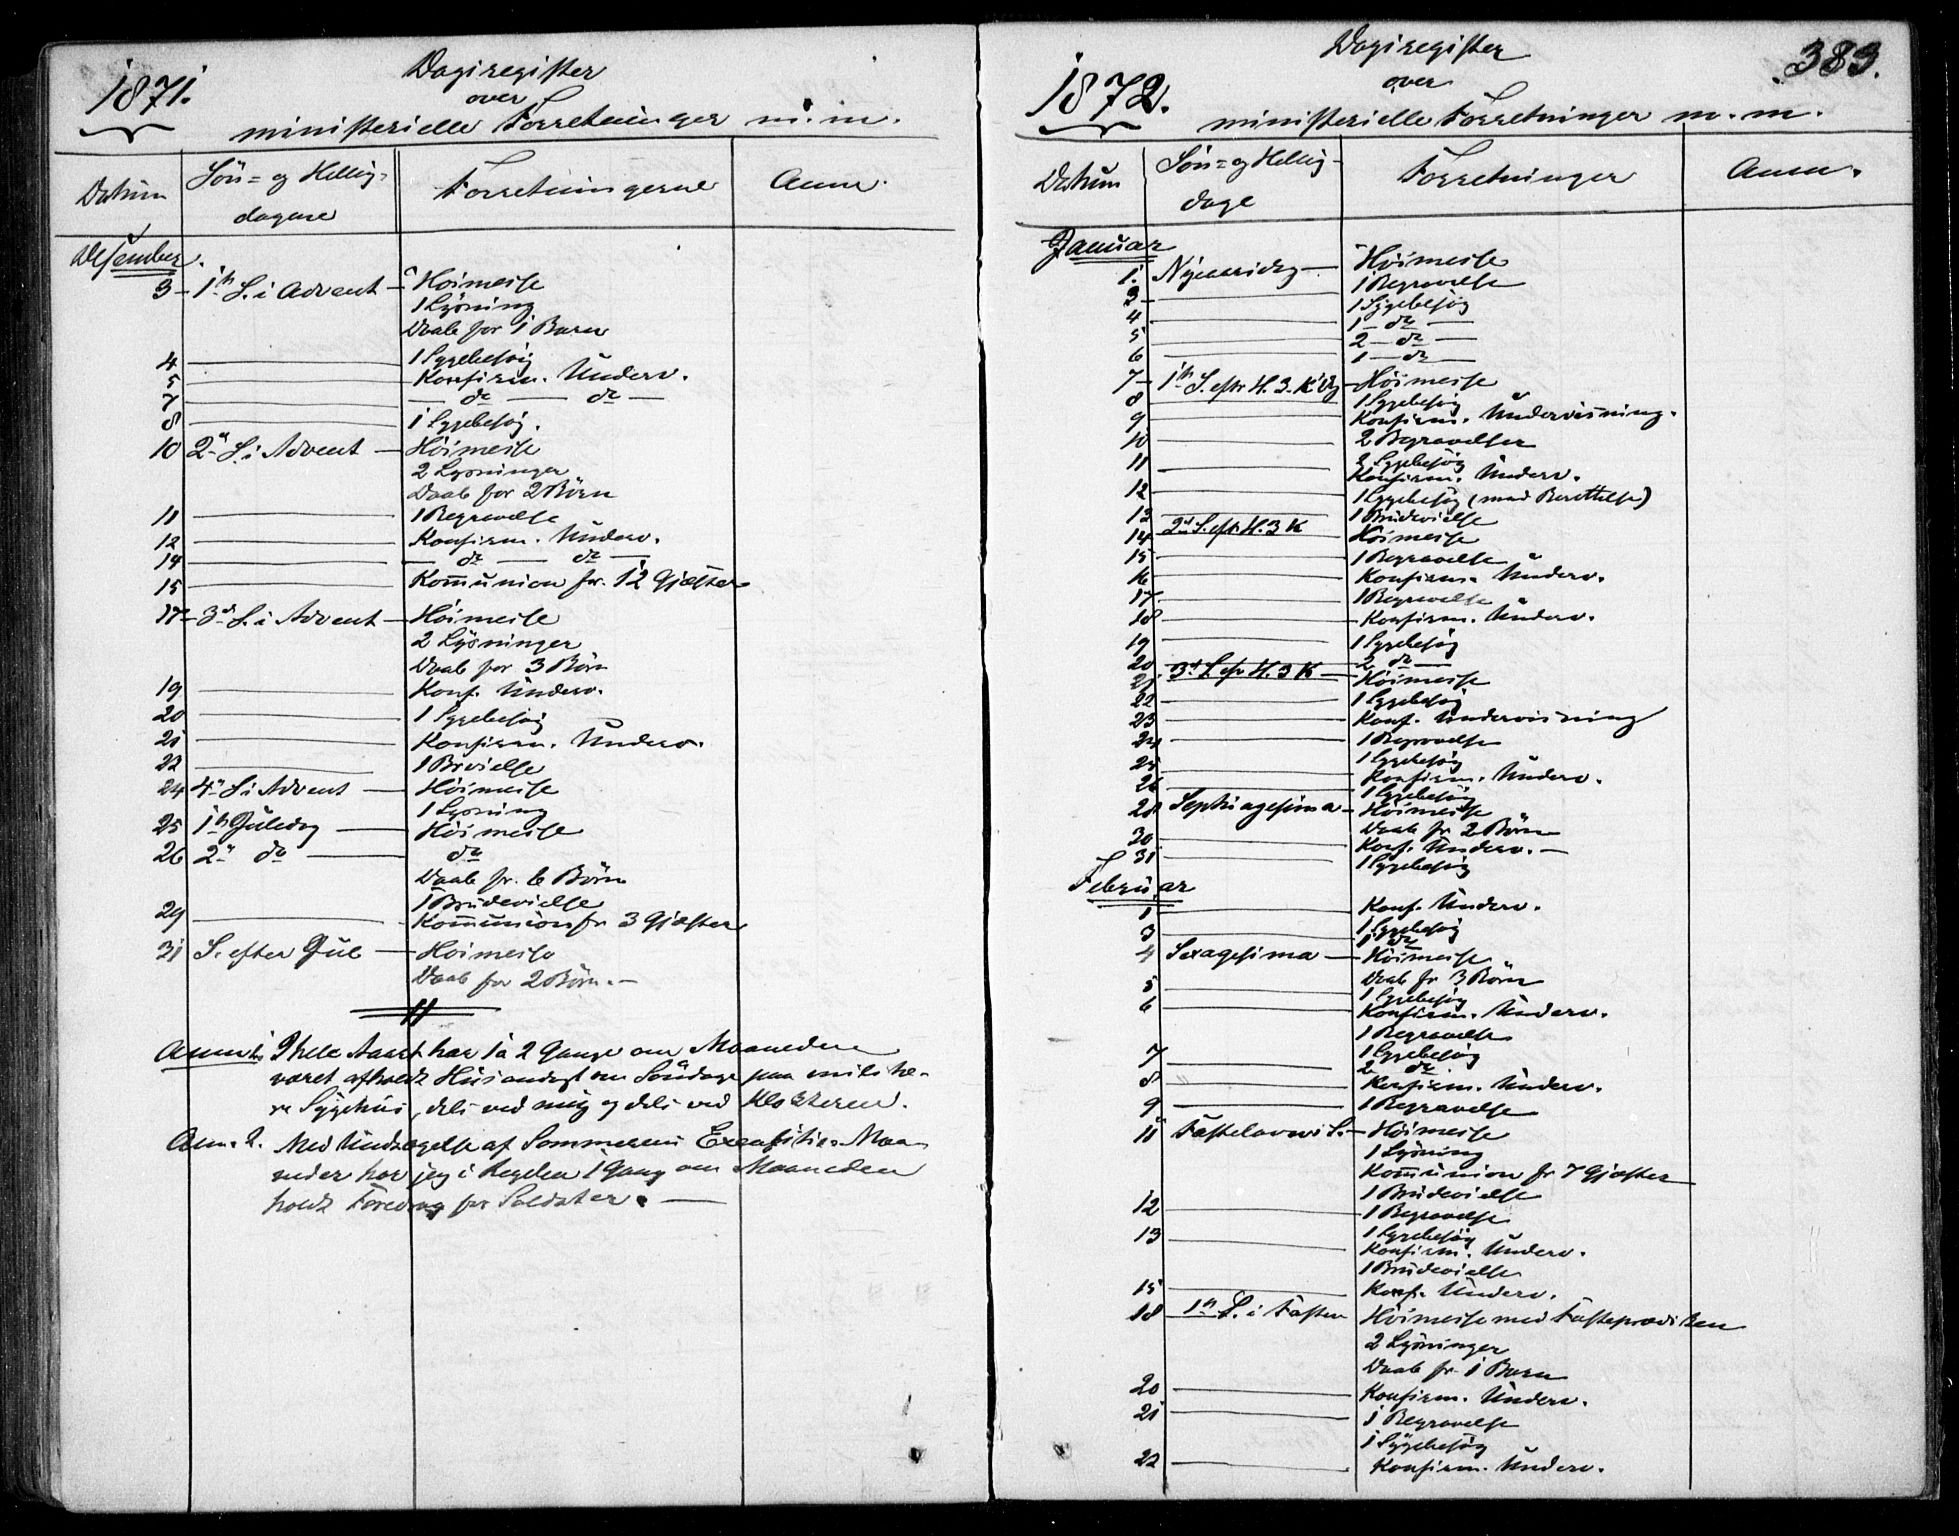 1871.
Dagsregister
over
ministerielle Forretninger m. m.
Datum
Søn= og Hellig-
dagene
Forretningerne
Anm.
Desember.
3 1ste S. i Advent Höimesse
1 Lysning
Daab for 1 Barn
4 1 Sygebesög
5 Konfirm. Underv.
7 do do
8 1 Sygebesög.
10 2den S. i Advent Höimesse
2 Lysninger
Daab for 2 Börn
11 1 Begravelse
12 Konfirm. Underv.
14 do do
15 Kommunion fr. 12 Gjæster
17 3die S. i Advent Höimesse
2 Lysninger
Daab for 3 Börn
19 Konf. Underv.
20 1 Sygebesög
21 Konfirm. Underv.
23 1 Brvielse
24 4de S. i Advent Höimesse
1 Lysning
25 1ste Juledag Höimesse
26 2den do do
Daab fr. 6 Börn
1 Brudevielse
29 Kommunion fr 3 Gjæster
31 S. efter Jul Höimesse
Daab for 2 Börn.
Anm. 1. I hele Aaret har 1 à 2 Gange om Maaneden
været afholdt Husandagt om Söndage paa militæ-
re Sygehus, dels ved mig og dels ved Klokkeren.
Anm. 2. Med Undtagelse af Sommerens Exersitie-Maa-
neder har jeg i Regelen 1 Gang om Maaneden
holdt Foredrag for Soldater.
383.
1872.
Dagsregister
over
ministerielle Forretninger m. m.
Datum
Søn= og Hellig-
dage
Forretninger
Anm.
Januar
1. Nytaarsdag Höimesse
3 1 Begravelse
4 1 Sygebesög
5 1 do
6 2 do
1 do
7 1ste S. eftr H. 3. K. Dg Höimesse
8 1 Sygebesög
9 Konfirm. Undervisning.
10 2 Begravelser
11 2 Sygebesög
Konfirm. Underv.
12 1 Sygebesög (med Berettelse)
13 1 Brudevielse
14 2den S. eftr H. 3 K Höimesse
15 1 Begravelse
16 Konfirm. Underv.
17. 1 Begravelse
18 Konfirm. Underv.
19 1 Sygebesög
20 2 do
21. 3die S. eftr H. 3 K Höimesse
22 1 Sygebesög
23 Konf. Undervisning
24 1 Begravelse
25 1 Sygebesög
Konfirm. Underv.
26 1 Sygebesög
28 Septuagesima Höimesse
Daab fr 2 Börn
30 Konf. Underv.
31 1 Sygebesög
Februar
1 Konf. Underv.
3 1 Sygebesög
1 do
4 Sexagesima Höimesse
Daab fr 3 Börn
5 1 Sygebesög
6 Konfirm. Underv.
1 Begravelse
7 1 Sygebesög
2 do
8 Konfirm. Underv.
9 1 Begravelse
11 Fastelavns S. Höimesse
1 Lysning
Kommunion fr 7 Gjæster
1 Brudevielse
12 1 Begravelse
13 1 Sygebesög
Konfirm. Underv.
1 Brudevielse
15 Konf. Underv.
18 1ste S. i Fasten Höimesse med Fasteprædiken
2 Lysninger
Daab fr. 1 Barn
20 Konfirm. Underv.
21 1 Begravelse
1 Sygebesög
22 Konfirm. Underv.